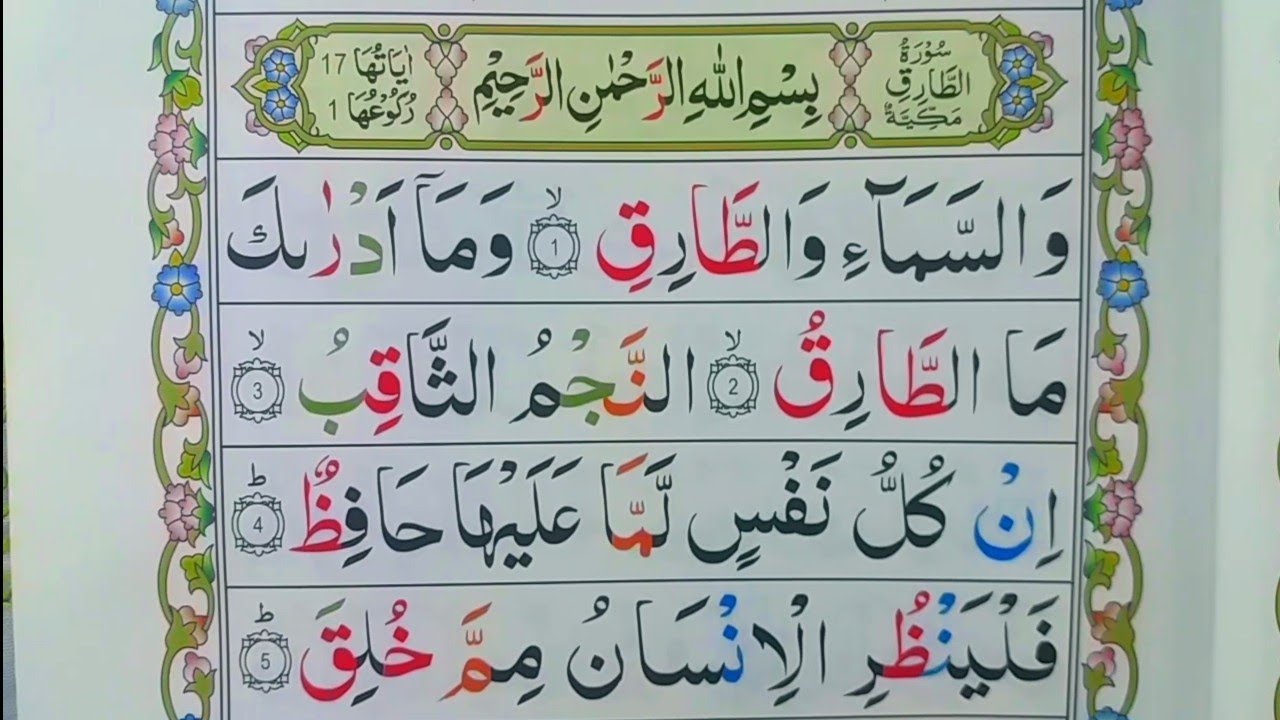 سُوْرَةُ الطَّارِقِ مَكِّيَّةٌ
بِسْمِ اللّٰهِ الرَّحْمٰنِ الرَّحِيْمِ
اٰيَاتُهَا 17
رُكُوْعُهَا 1
وَالسَّمَآءِ وَالطَّارِقِ ۙ 1 وَمَآ اَدْرٰىكَ
مَا الطَّارِقُ ۙ 2 النَّجْمُ الثَّاقِبُ ۙ 3
اِنْ كُلُّ نَفْسٍ لَّمَّا عَلَيْهَا حَافِظٌ ؕ 4
فَلْيَنْظُرِ الْاِنْسَانُ مِمَّ خُلِقَ ؕ 5